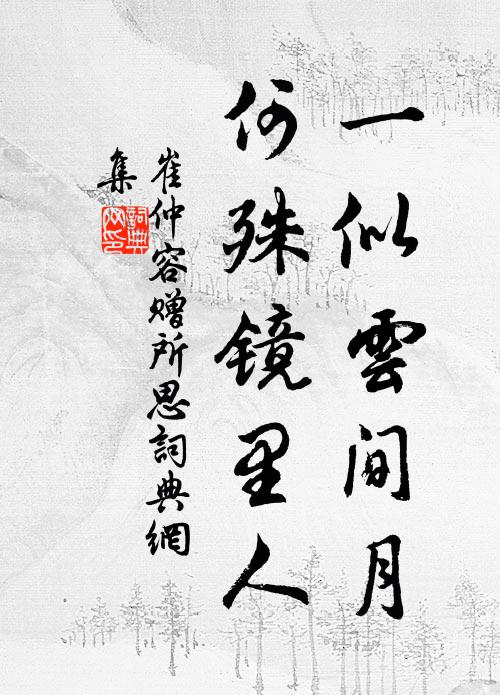 一似雲間月
何殊鏡里人
崔仲容贈所思詞典網
集
詞典
网印